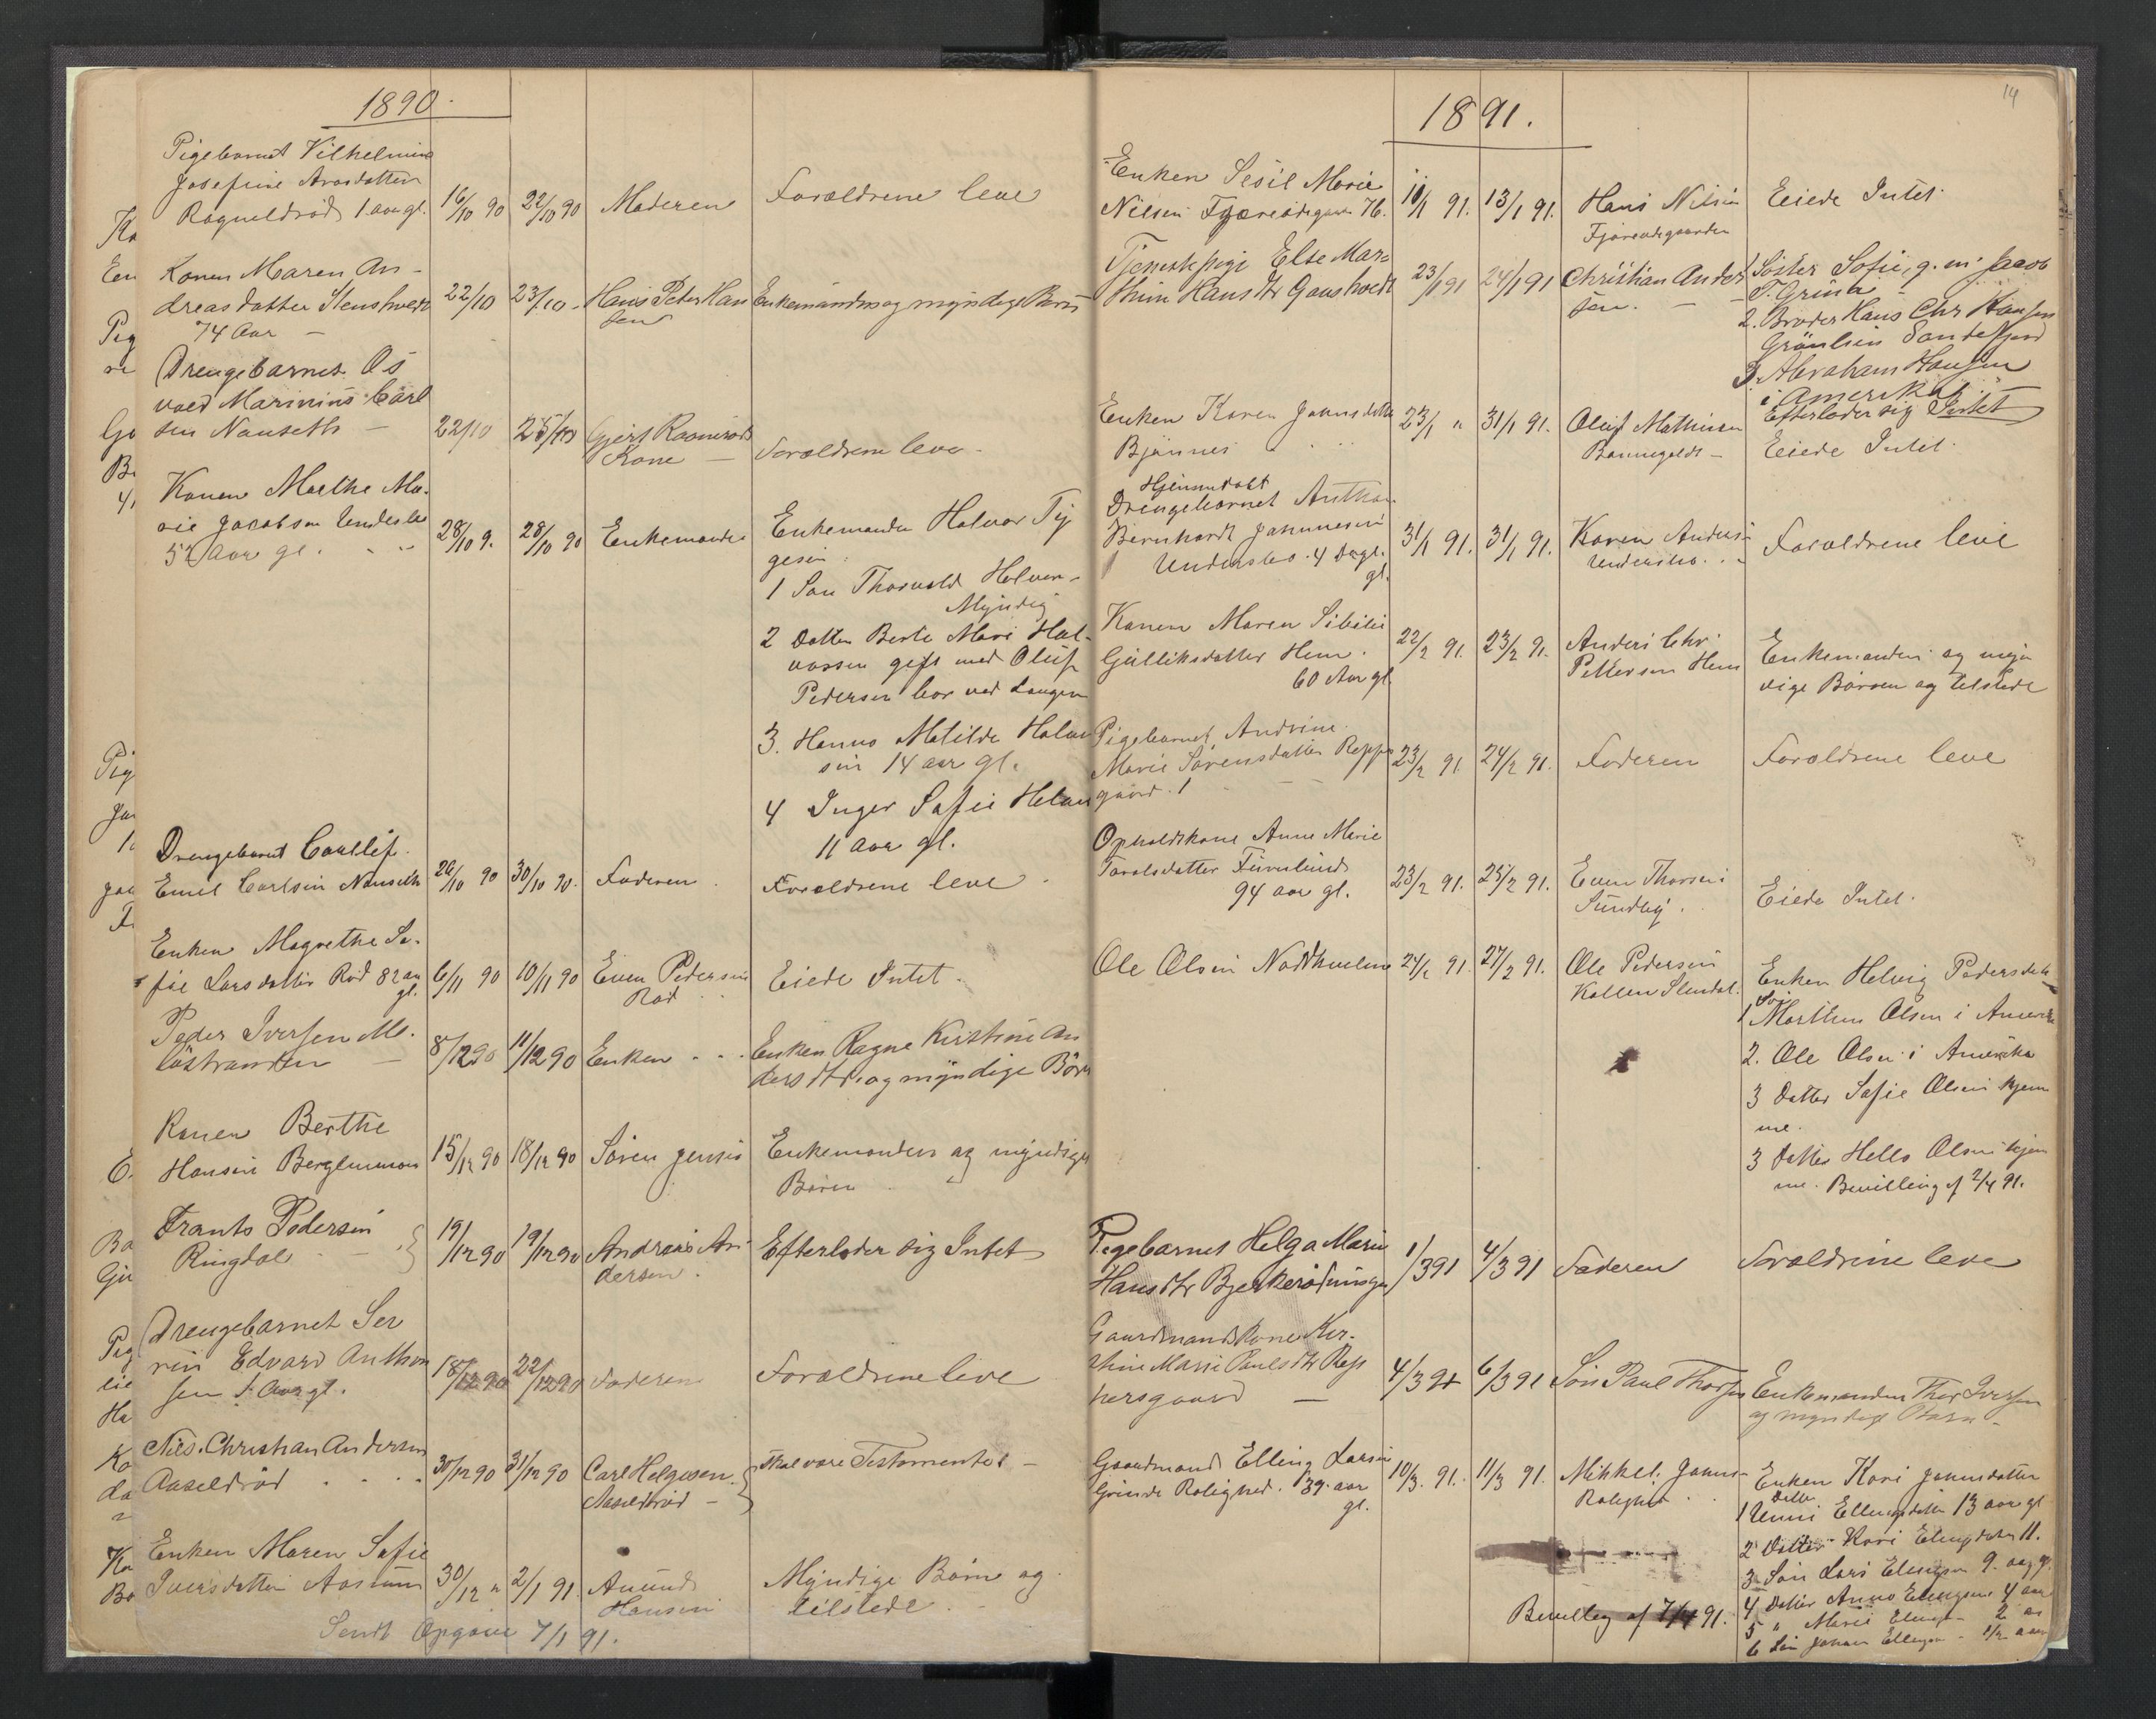 1890.
Pigebarnet Vilhelmine
Josefine Arosdatter
Ragneldrød 1 aar gl.
16/10 90 22/10 90 Moderen Forældrene leve
Konen Maren An-
dreasdatter Stenshvedt
74 Aar
22/10 23/10 Hans Peter Han
sen
Enkemanden og myndige Børn
Drengebarnet Os
vald Marinius Carl
sen Nauseth
22/10 25/10 Gjert Ravnerøds
Kone
Forældrene leve
Konen Marthe Ma-
rie Jacobsen Undersbo
52 Aar gl.
28/10 9. 28/10 90 Enkemanden
Enkemanden Halvor Ty
gesen
1 Søn Thorvald Halvor-
Myndig
2 Datter Berte Mari Hal-
vorsen gift med Oluf
Pedersen bor ved Laugen
3. Hanna Matilde Halvor
sen 14 aar gl.
4 Inger Safie Halvor
11 aar gl.
Drengebarnet
Emil Carlsen Nauseth
26/10 90 30/10 90. Faderen Forældrene leve
Enken Magrethe So-
fie Larsdatter Rød 82 aar
gl.
6/11 90 10/11 90 Even Pedersen
Rød
Eiede Intet.
Peder Iversen Me-
løstranden
8/12 90 11/12 90 Enken
Enken Ragne Kirstine An
dersdtr. og myndige Børn
Konen Berthe
Hansen Berglemmon
15/12 90 18/12 90 Søren Jensen
Enkemanden og myndige
Børen
Frants Pedersen
Ringdal
19/12 90 19/12 90 Andreas An
dersen
Efterlader sig Intet
Drengebarnet Ser
rin Edvard Anthon
sen 1 Aar gl.
18/12 90 22/12 90 Faderen Forældrene leve
Nils Christian Andersen
Aaseldrød
30/12 90 31/12 90 Carl Helgesen
Aaseldrød
skal være Testamenteret
Enken Maren Safie
Iversdatter Aasrum
30/12 " 2/1 91. Amund
Hansen
Myndige Børn og
tilstede
Sendt Opgave 7/1 91.
14
1891.
Enken Sesil Marie
Nilsen Fjæreødegaar 76.
10/1 91. 13/1 91. Hans Nilsen
Fjæreødegaarden
Eiede Intet
Tjenestepige Else Mar-
thine Hansdtr Gaushvedt
23/1 91 24/1 91 Christian Ander
sen.
1. Søster Sofie, g. m. Jacob
T. Grime
2. Broder Hans Chr Hansen
Grønlien Sandefjord
3. Abraham Hansen
i Amerika
Efterlader sig Intet
Enken Karen Jonnsdatter
Bjønnes
23/1 " 31/1 91. Oluf Mathisen
Eiede Intet
Hjemmedøbt
Drengebarnet Anthon
Bernhardt Johannesen
Undersbo. 4 Dage
gl.
31/1 91. 31/1 91. Karen Anders-
Undersbo
Forældrene leve
Konen Maren Sibilie
Gulliksdatter Hem.
60 Aar gl.
22/2 91. 23/2 91. Anders Chr.
Pettersen Hem
Enkemanden og myn
dige Børnen og tilstede
Pigebarnet Andrine
Marie Sørensdatter Reppe
gaard. 1
23/2 91. 24/2 91. Faderen Forældrene leve
Opholdskone Anne Marie
Taralsdatter Furulund
94 aar gl.
23/2 91. 25/2 91. Even Thorsen
Sundby.
Eiede Intet.
Ole Olsen Nordhvelme
24/2 91. 27/2 91. Ole Pedersen
Enken Helvig Pedersdatter
Søn
1 Marthin Olsen i Amerika
2. Ole Olsen i Amerika
3 Datter Safie Olsen hjem
me.
3 Datter Hella Olsen hjem
me. Bevilling af 2/4 91.
Pigebarnet Helga Marie
Hansdtr Bjerkerødningen
1/3 91 4/3 91 Faderen Forældrene leve
Gaardmands Kone Kir-
stine Marie Paulsdtr Rep
persgaard
4/3 91 6/3 91 Søn Paul Thorsen
Enkemanden Thor Iversen
og myndige Børn
Gaardmand Elling Larsen
Grinde Rolighed. 39 aar
gl.
10/3. 91. 11/3 91. Mikkel Johns-
Rolighed
Enken Kari Johnsdatter
Datter
1 Unni Ellingsdatter 13 aar gl
2 Datter Kari Elingsdatter 11.
3 Søn Lars Elingsen 9. aar gl.
4 Datter Anna Elingsen 4 aar
5 " Marie Elingsen 2 aar
6 Søn Johan Ellingsen 1/2 aar
Bevilling af 7/4 91.